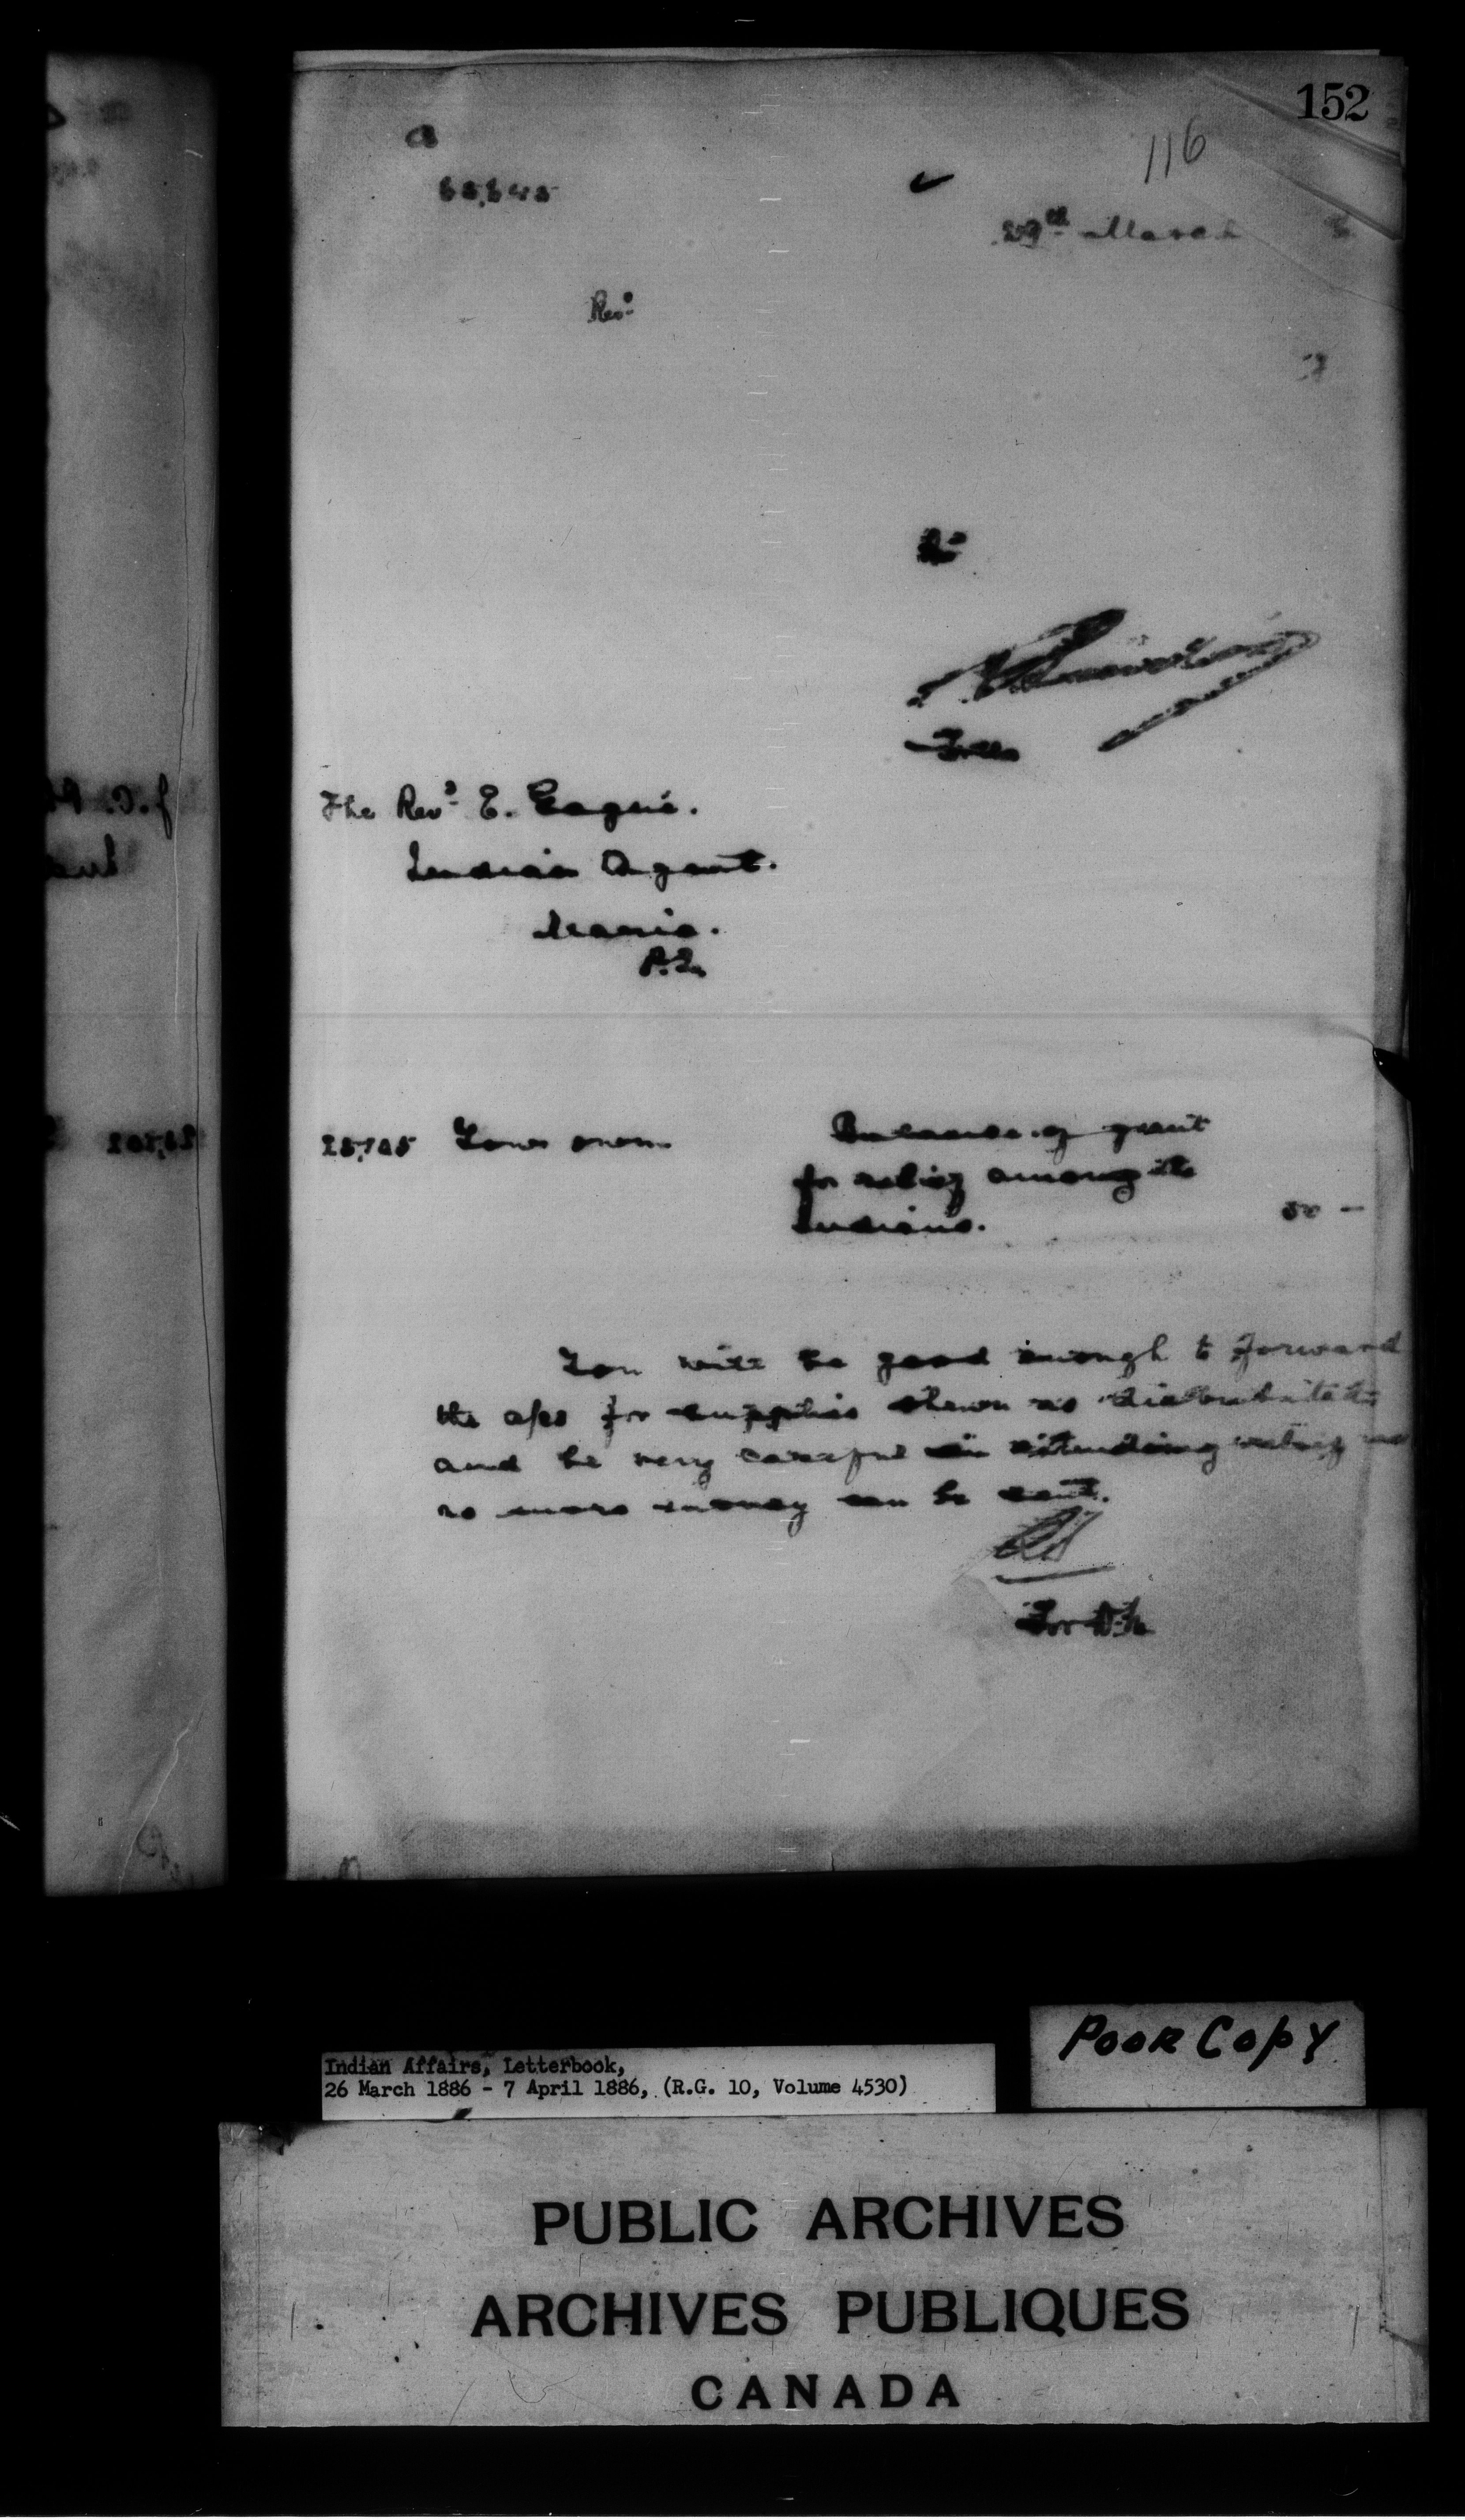 152
116
29th March
Revd
The Revd E. Gagné.
Indian Agent.
Maria.
P.Q.
Balance of grant
for relief among the
Indians. 50 —
You will be good enough to forward
the a/cs for supplies shewn as distributed
and be very careful in extending relief as
no more money can be sent.
Poor Copy
Indian Affairs, Letterbook,
26 March 1886 - 7 April 1886, (R.G. 10, Volume 4530)
PUBLIC ARCHIVES
ARCHIVES PUBLIQUES
CANADA